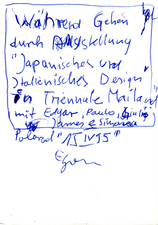 Während Gehen
durch Ausstellung
"Japanisches und
Italienisches Design"
in Triennale Mailand
mit Edgar, Paulo, Giulio
James & Simarca
Polaroid "15 IV 95"